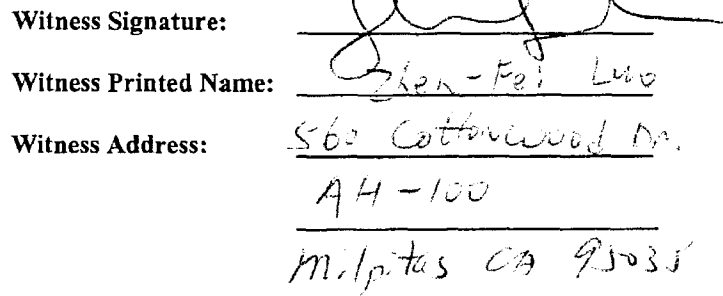 Witness Signature:
Witness Printed Name: Zhen-Fei Luo
Witness Address: 560 Cottonwood Dr.
AH-100
Milpitas CA 95035